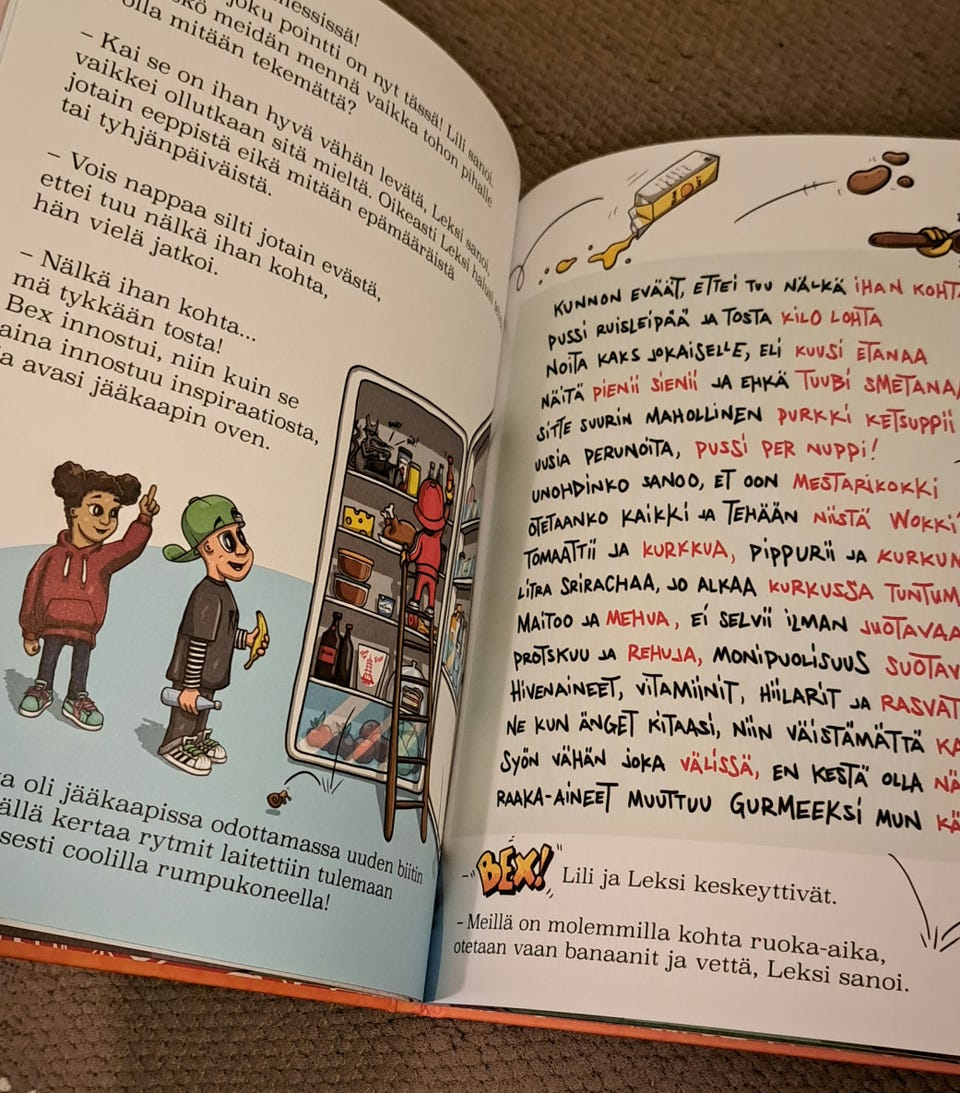 messissä!
joku pointti on nyt tässä! Lili sanoi.
meidän mennä vaikka tohon pihalle
olla mitään tekemättä?
– Kai se on ihan hyvä vähän levätä, Leksi sanoi,
vaikkei ollutkaan sitä mieltä. Oikeasti Leksi halusi
jotain eeppistä eikä mitään epämääräistä
tai tyhjänpäiväistä.
– Vois nappaa silti jotain evästä,
ettei tuu nälkä ihan kohta,
hän vielä jatkoi.
– Nälkä ihan kohta...
mä tykkään tosta!
Bex innostui, niin kuin se
aina innostuu inspiraatiosta,
ja avasi jääkaapin oven.
oli jääkaapissa odottamassa uuden biitin
kertaa rytmit laitettiin tulemaan
coolilla rumpukoneella!
KUNNON EVÄÄT, ETTEI TUU NÄLKÄ IHAN KOHTA
PUSSI RUISLEIPÄÄ JA TOSTA KILO LOHTA
NOITA KAKS JOKAISELLE, ELI KUUSI ETANAA
NÄITÄ PIENII SIENII JA EHKÄ TUUBI SMETANAA
SITTE SUURIN MAHOLLINEN PURKKI KETSUPPII
UUSIA PERUNOITA, PUSSI PER NUPPI!
UNOHDINKO SANOO, ET OON MESTARIKOKKI
OTETAANKO KAIKKI JA TEHÄÄN NIISTÄ WOKKI
TOMAATTII JA KURKKUA, PIPPURII JA KURKUM
LITRA SRIRACHAA, JO ALKAA KURKUSSA TUNTUM
MAITOO JA MEHUA, EI SELVII ILMAN JUOTAVAA
PROTSKUU JA REHUJA, MONIPUOLISUUS SUOTAV
HIVENAINEET, VITAMIINIT, HIILARIT JA RASVAT
NE KUN ÄNGET KITAASI, NIIN VÄISTÄMÄTTÄ KA
SYÖN VÄHÄN JOKA VÄLISSÄ, EN KESTÄ OLLA NÄ
RAAKA-AINEET MUUTTUU GURMEEKSI MUN KÄ
–"BEX!" Lili ja Leksi keskeyttivät.
– Meillä on molemmilla kohta ruoka-aika,
otetaan vaan banaanit ja vettä, Leksi sanoi.